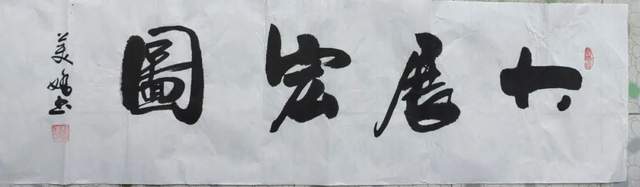 大展宏圖
美嬌書